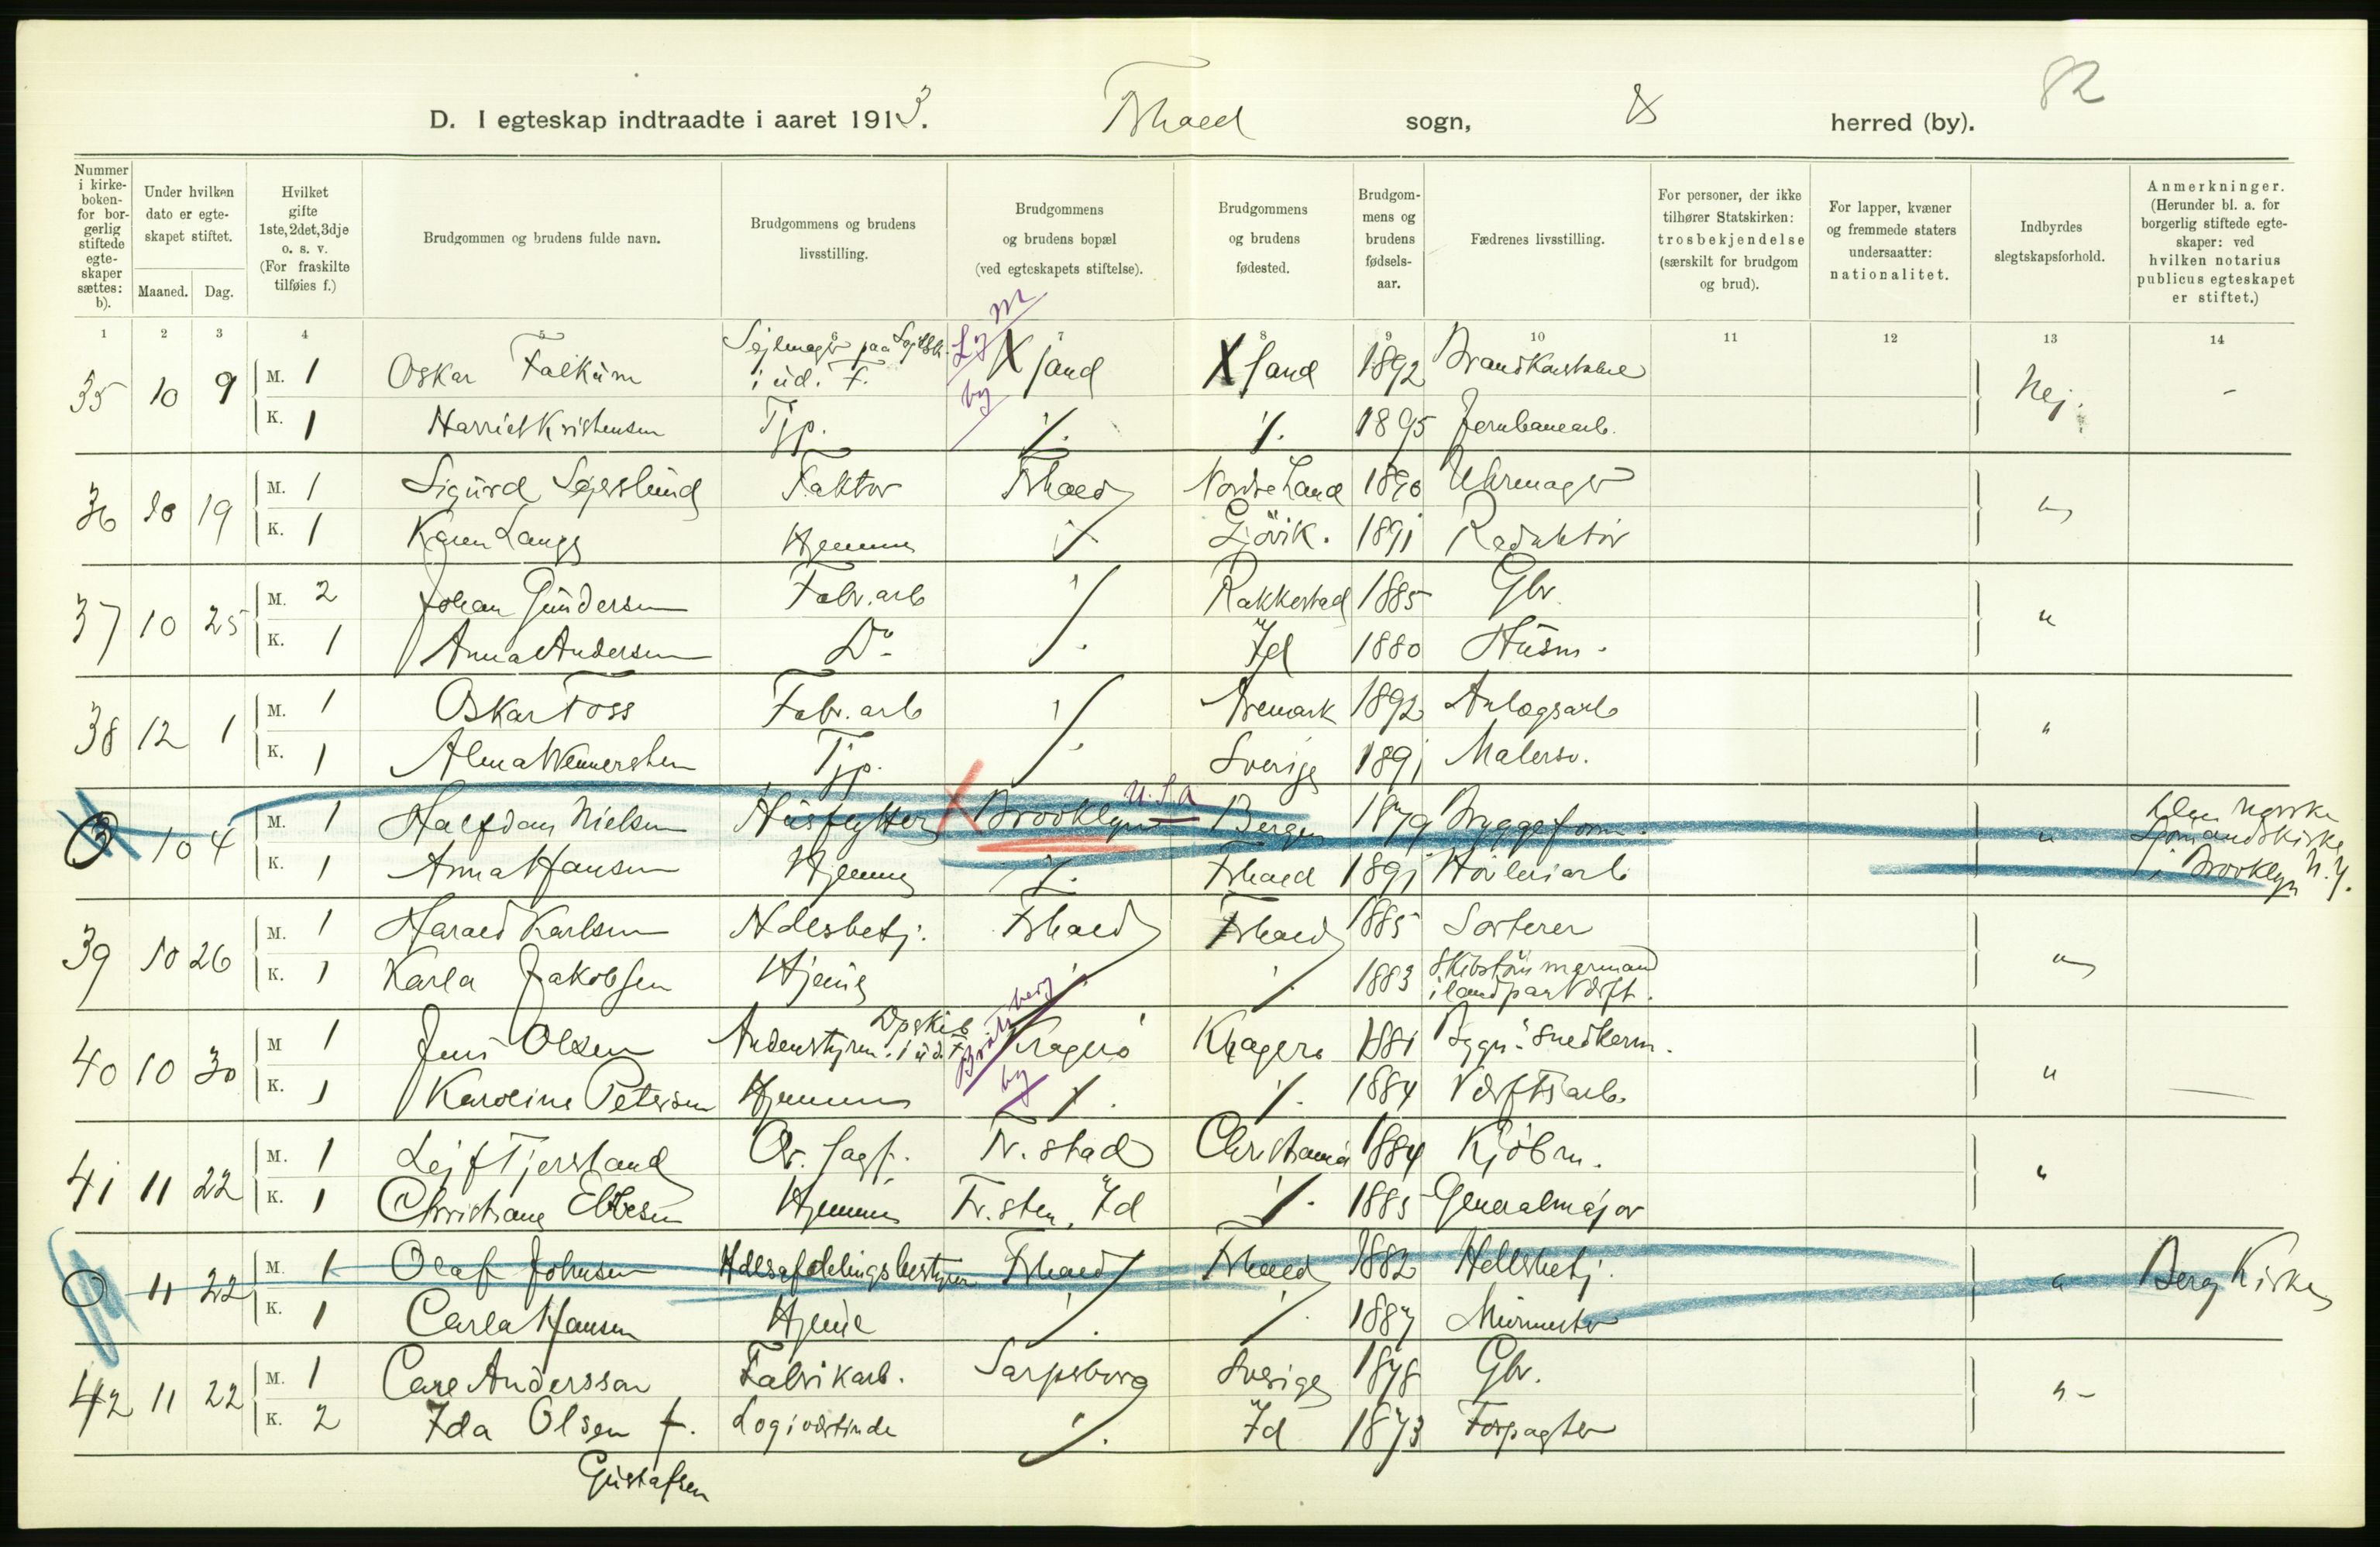 82
D. I egteskap indtraadte i aaret 1913. Frhald sogn, & herred (by).
Nummer i kirkeboken- for borgerlig stiftede egteskaper sættes: b).
Under hvilken dato er egteskapet stiftet.
Maaned. Dag.
Hvilket gifte 1ste, 2det, 3dje o. s. v. (For fraskilte tilføies f.)
Brudgommen og brudens fulde navn.
Brudgommens og brudens livsstilling.
Brudgommens og brudens bopæl (ved egteskapets stiftelse).
Brudgommens og brudens fødested.
Brudgommens og brudens fødselsaar.
Fædrenes livsstilling.
For personer, der ikke tilhører Statskirken: trosbekjendelse (særskilt for brudgom og brud).
For lapper, kvæner og fremmede staters undersaatter: nationalitet.
Indbyrdes slegtskapsforhold.
Anmerkninger. (Herunder bl. a. for borgerlig stiftede egteskaper: ved hvilken notarius publicus egteskapet er stiftet.)
1 2 3 4 5 6 7 8 9 10 11 12 13 14
35 10 9 M. 1 Oskar Falkum Sejlmager paa Sejlsk. i ud. F. L & M by X sand X sand 1892 Brandkonstabel Nej. -
K. 1 Harriet Kristensen Tjp. ./. ./. 1895 Jernbanearb.
36 10 19 M. 1 Sigurd Sejerslund Faktor Frhald Nordre Land 1890 Uhrmager "
K. 1 Karen Lange Hjemme ./. Gjövik. 1891 Redaktör
37 10 25 M. 2 Johan Gundersen Fabr. arb ./. Rakkestad 1885 Gbr. "
K. 1 Anna Andersen Do. Id 1880 Husm.
38 12 1 M. 1 Oskar Foss Fabr. arb ./. Aremark 1892 Anlægsarb "
K. 1 Alma Wennersten Tjp. Sverige 1891 Malersv.
O 10 4 M. 1 Halfdan Nielsen Husflytter X Brooklyn U.S.A Bergen 1879 Byggeform. " Den norske Sjömandskirke i Brooklyn N.Y.
K. 1 Anna Hansen Hjemme ./. Frhald 1891 Hövleriarb
39 10 26 M. 1 Harald Karlsen Hdlsbetj. Frhald Frhald 1885 Sorterer "
K. 1 Karla Jakobsen Hjemme ./. ./. 1883 Skibstömmermand i land paa Værft.
40 10 30 M 1 Jens Olsen Andenstyrm. Dpskib i ud. F. Bratsberg by Kragerö Kragerö 1881 Bygn.-Snedkerm. "
K. 1 Karoline Petersen Hjemme ./. ./. 1884 Værftsarb.
41 11 22 M. 1 Lejf Tjersland Or. sagf. Fr. stad Christiania 1884 Kjöbm. "
K. 1 Christiane Ebbesen Hjemme Fr. sten, Id ./. 1885 Generalmajor
O 11 22 M. 1 Olaf Johnsen Hdlsafdelingsbestyrer Frhald Frhald 1882 Hdlsbetj. " Berg Kirke
K. 1 Carla Hansen Hjemme ./. ./. 1887 Murmester
42 11 22 M. 1 Carl Andersson Fabrikarb. Sarpsborg Sverige 1878 Gbr. " -
K. 2 Ida Olsen f. Logiværtinde ./. Id 1873 Forpagter
Gustafsen